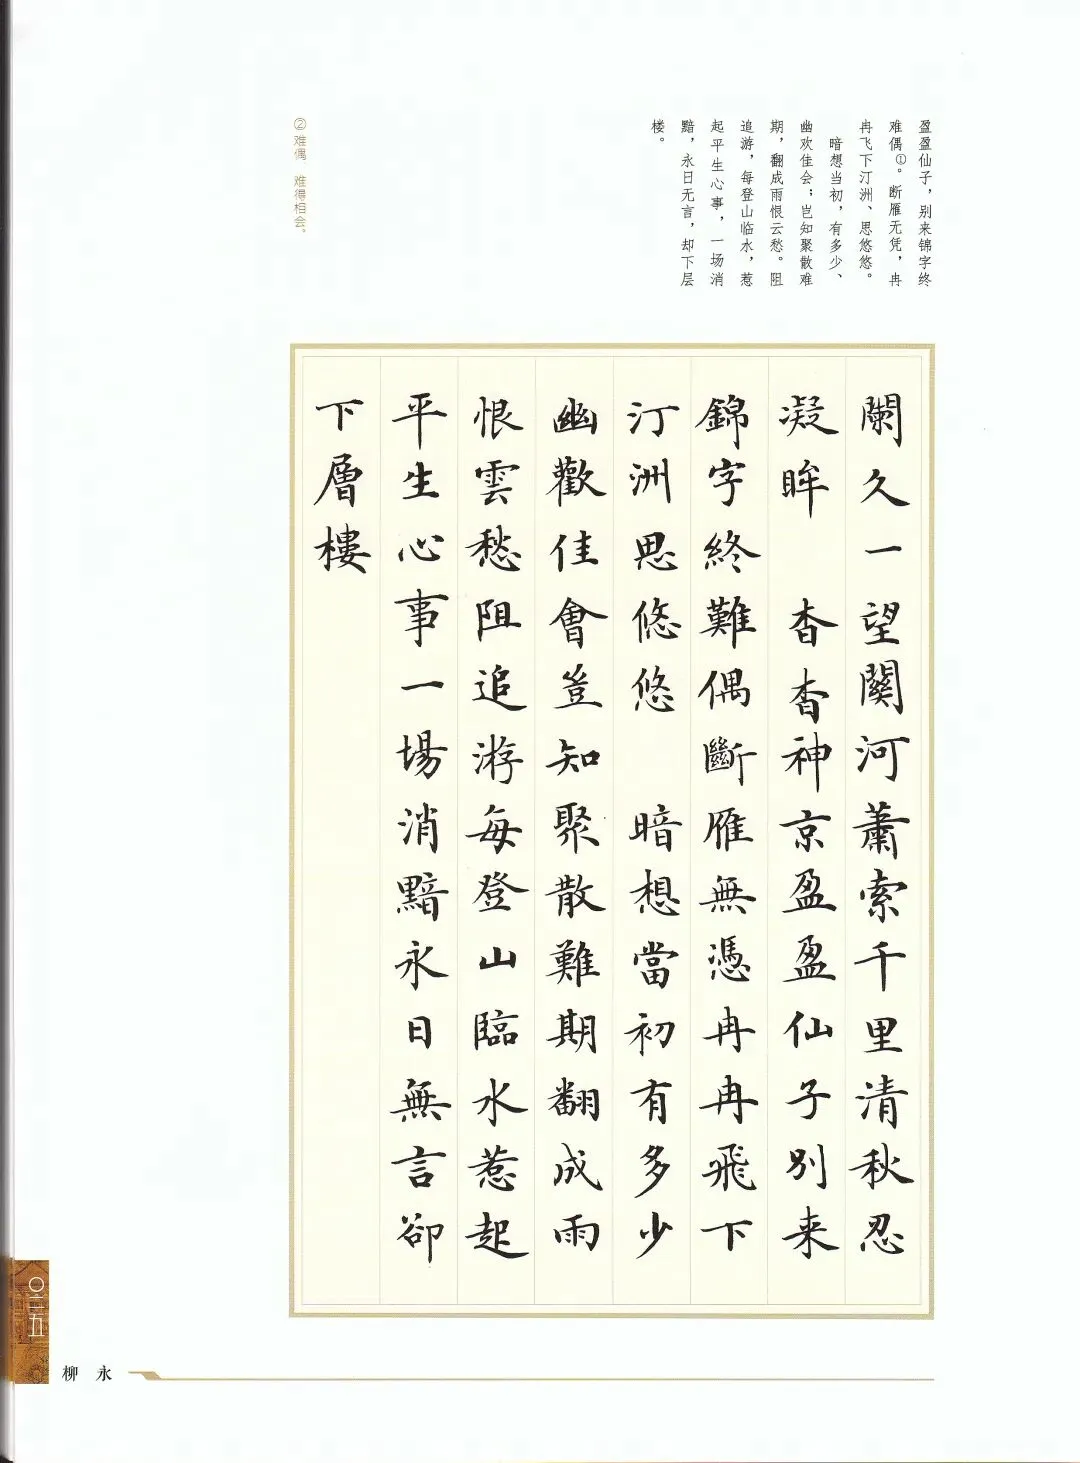 盈盈仙子，别来锦字终
难偶①。断雁无凭，冉
冉飞下汀洲、思悠悠。
暗想当初，有多少、
幽欢佳会；岂知聚散难
期，翻成雨恨云愁。阻
追游，每登山临水，惹
起平生心事，一场消
黯，永日无言，却下层
楼。
②难偶 难得相会。
闌久一望關河蕭索千里清秋忍
凝眸 杳杳神京盈盈仙子別来
錦字終難偶斷雁無憑冉冉飛下
汀洲思悠悠 暗想當初有多少
幽歡佳會豈知聚散難期翻成雨
恨雲愁阻追游每登山臨水惹起
平生心事一場消黯永日無言卻
下層樓
〇二五
柳永